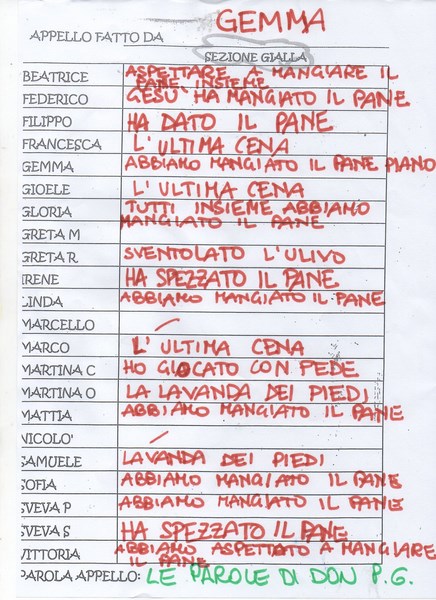 APPELLO FATTO DA GEMMA
SEZIONE GIALLA
BEATRICE ASPETTARE A MANGIARE IL
PANE INSIEME
FEDERICO GESÙ HA MANGIATO IL PANE
FILIPPO HA DATO IL PANE
FRANCESCA L'ULTIMA CENA
GEMMA ABBIAMO MANGIATO IL PANE PIANO
GIOELE L'ULTIMA CENA
GLORIA TUTTI INSIEME ABBIAMO
MANGIATO IL PANE
GRETA M
GRETA R. SVENTOLATO L'ULIVO
IRENE HA SPEZZATO IL PANE
LINDA ABBIAMO MANGIATO IL PANE
MARCELLO
MARCO L'ULTIMA CENA
MARTINA C HO GIOCATO CON FEDE
MARTINA O LA LAVANDA DEI PIEDI
MATTIA ABBIAMO MANGIATO IL PANE
NICOLO'
SAMUELE LAVANDA DEI PIEDI
SOFIA ABBIAMO MANGIATO IL PANE
SVEVA P ABBIAMO MANGIATO IL PANE
SVEVA S HA SPEZZATO IL PANE
VITTORIA ABBIAMO ASPETTATO A MANGIARE
IL PANE
PAROLA APPELLO: LE PAROLE DI DON P.G.